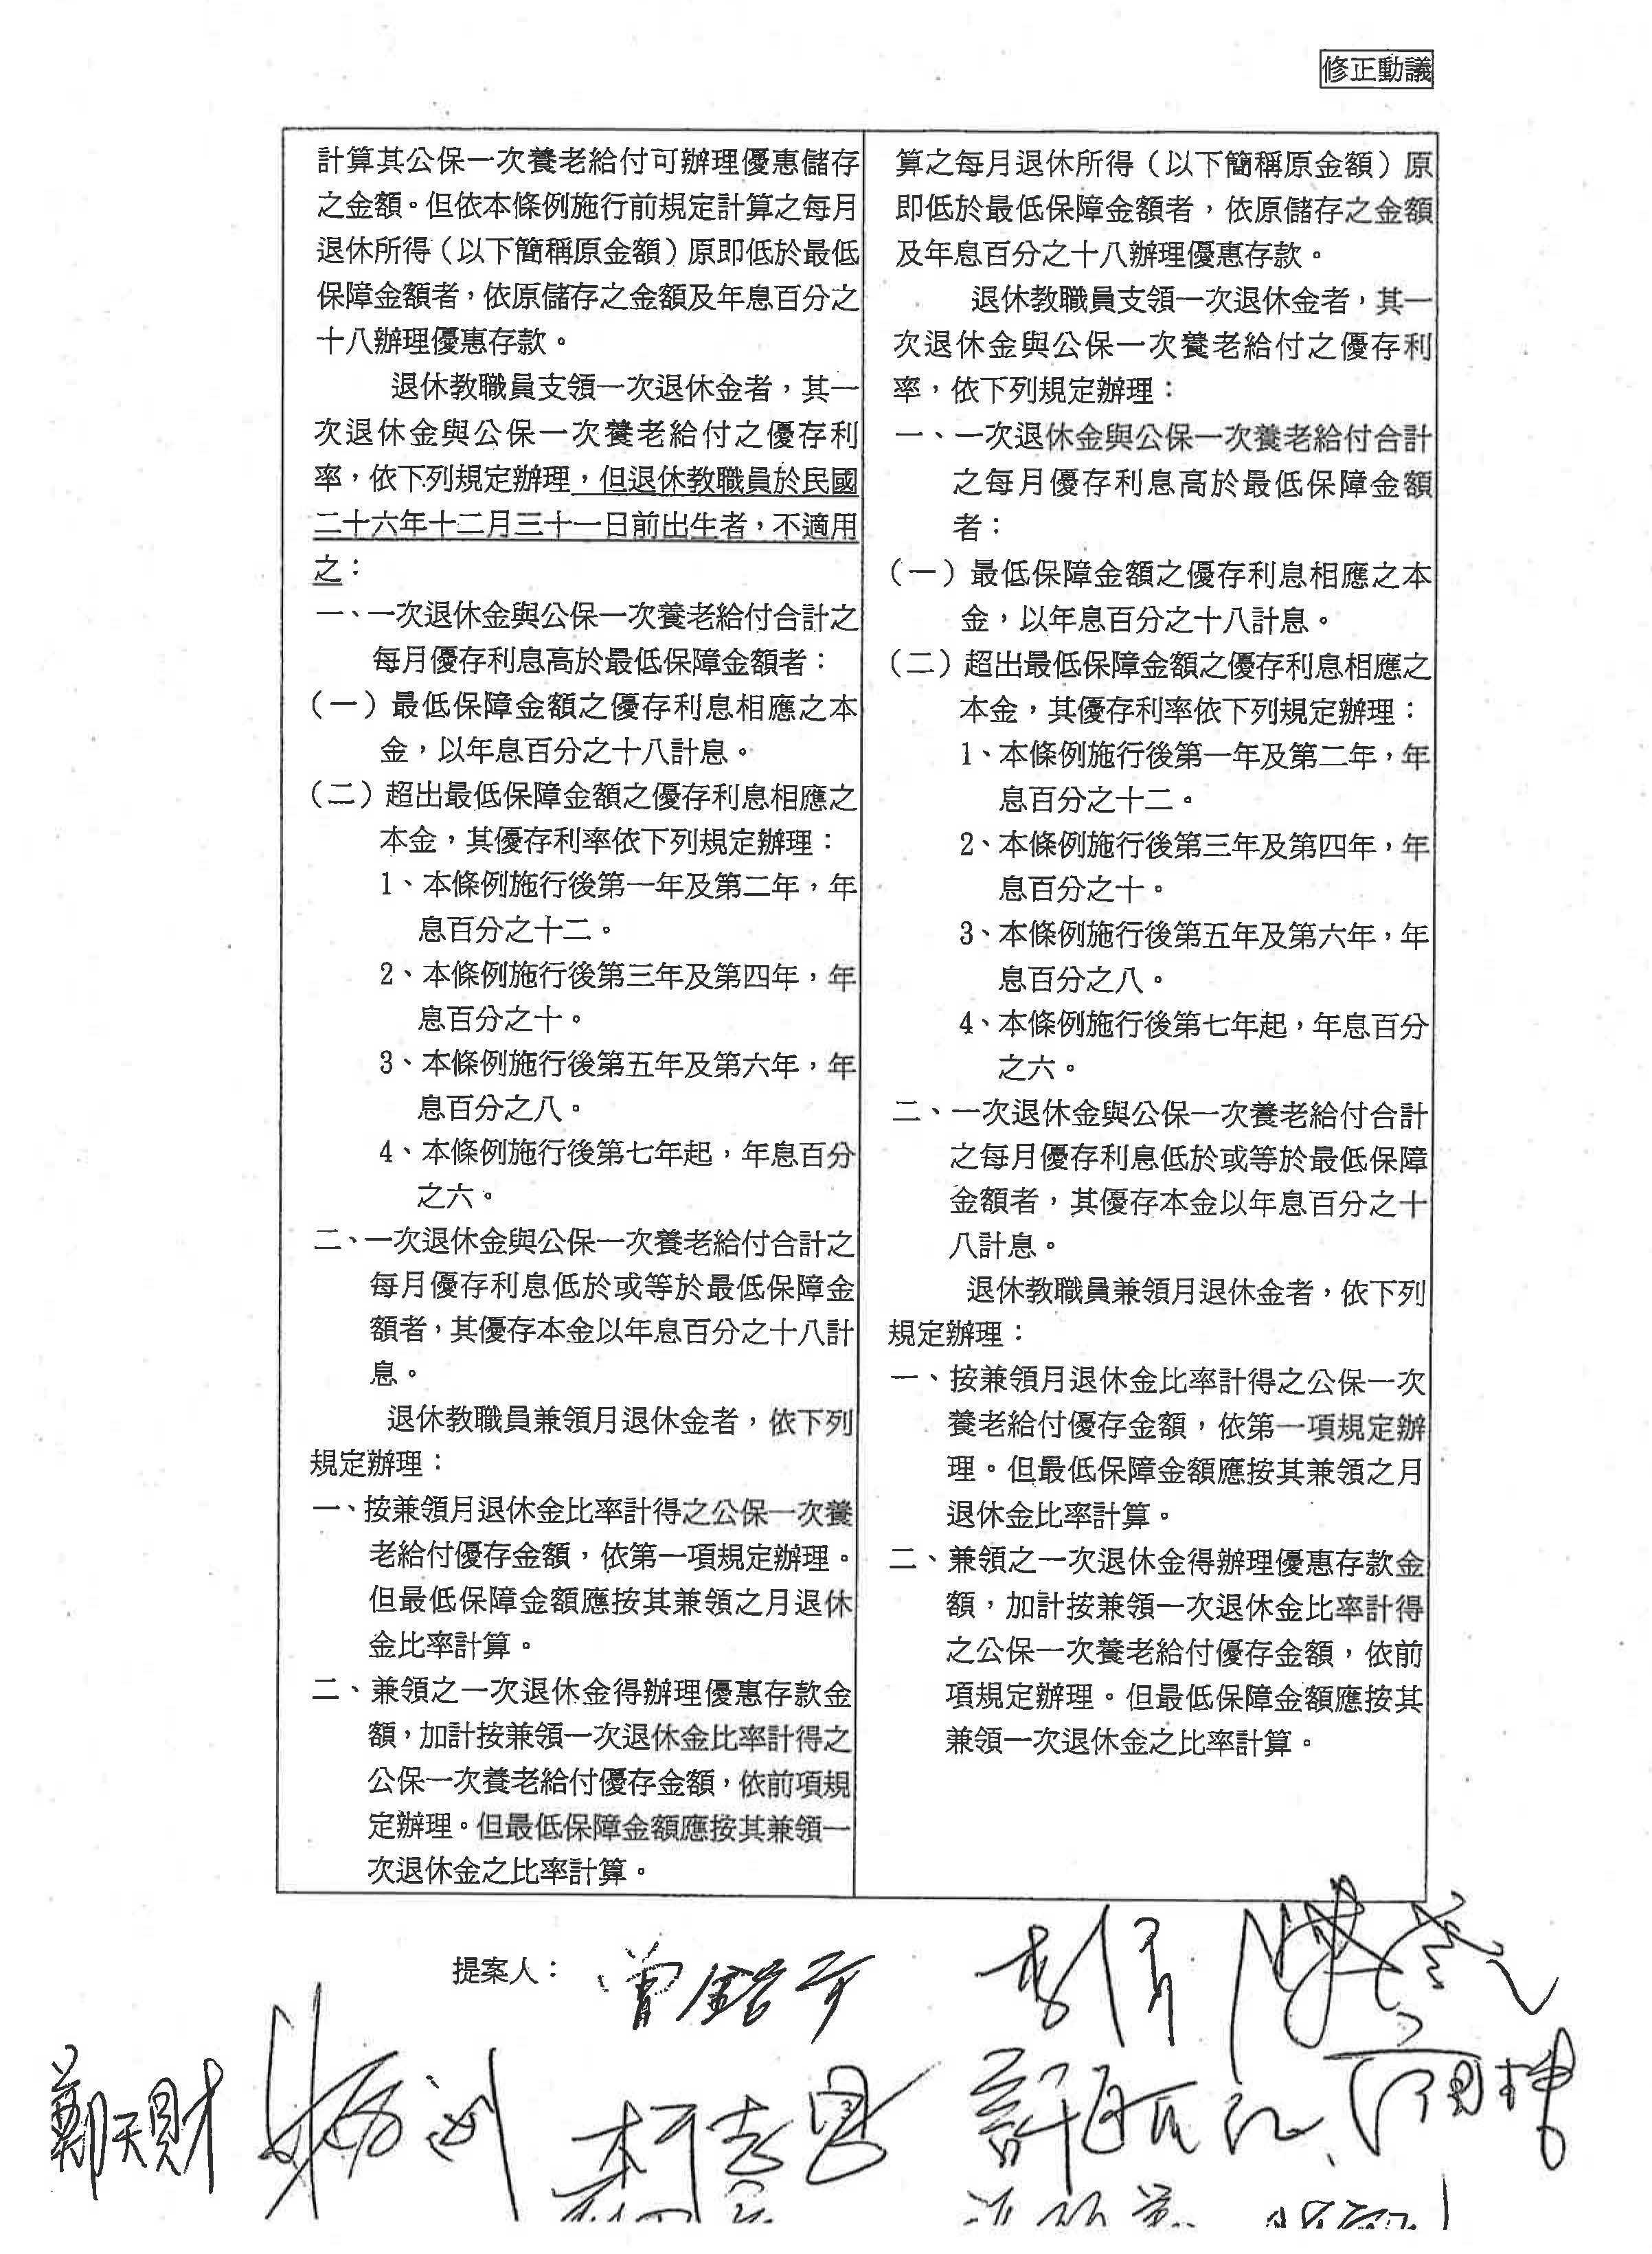 修正動議
計算其公保一次養老給付可辦理優惠儲存
之金額。但依本條例施行前規定計算之每月
退休所得（以下簡稱原金額）原即低於最低
保障金額者，依原儲存之金額及年息百分之
十八辦理優惠存款。
退休教職員支領一次退休金者，其一
次退休金與公保一次養老給付之優存利
率，依下列規定辦理，但退休教職員於民國
二十六年十二月三十一日前出生者，不適用
之：
一、一次退休金與公保一次養老給付合計之
每月優存利息高於最低保障金額者：
（一）最低保障金額之優存利息相應之本
金，以年息百分之十八計息。
（二）超出最低保障金額之優存利息相應之
本金，其優存利率依下列規定辦理：
1、本條例施行後第一年及第二年，年
息百分之十二。
2、本條例施行後第三年及第四年，年
息百分之十。
3、本條例施行後第五年及第六年，年
息百分之八。
4、本條例施行後第七年起，年息百分
之六。
二、一次退休金與公保一次養老給付合計之
每月優存利息低於或等於最低保障金
額者，其優存本金以年息百分之十八計
息。
退休教職員兼領月退休金者，依下列
規定辦理：
一、按兼領月退休金比率計得之公保一次養
老給付優存金額，依第一項規定辦理。
但最低保障金額應按其兼領之月退休
金比率計算。
二、兼領之一次退休金得辦理優惠存款金
額，加計按兼領一次退休金比率計得之
公保一次養老給付優存金額，依前項規
定辦理。但最低保障金額應按其兼領一
次退休金之比率計算。
算之每月退休所得（以下簡稱原金額）原
即低於最低保障金額者，依原儲存之金額
及年息百分之十八辦理優惠存款。
退休教職員支領一次退休金者，其一
次退休金與公保一次養老給付之優存利
率，依下列規定辦理：
一、一次退休金與公保一次養老給付合計
之每月優存利息高於最低保障金額
者：
（一）最低保障金額之優存利息相應之本
金，以年息百分之十八計息。
（二）超出最低保障金額之優存利息相應之
本金，其優存利率依下列規定辦理：
1、本條例施行後第一年及第二年，年
息百分之十二。
2、本條例施行後第三年及第四年，年
息百分之十。
3、本條例施行後第五年及第六年，年
息百分之八。
4、本條例施行後第七年起，年息百分
之六。
二、一次退休金與公保一次養老給付合計
之每月優存利息低於或等於最低保障
金額者，其優存本金以年息百分之十
八計息。
退休教職員兼領月退休金者，依下列
規定辦理：
一、按兼領月退休金比率計得之公保一次
養老給付優存金額，依第一項規定辦
理。但最低保障金額應按其兼領之月
退休金比率計算。
二、兼領之一次退休金得辦理優惠存款金
額，加計按兼領一次退休金比率計得
之公保一次養老給付優存金額，依前
項規定辦理。但最低保障金額應按其
兼領一次退休金之比率計算。
提案人：
鄭天財
柯志恩